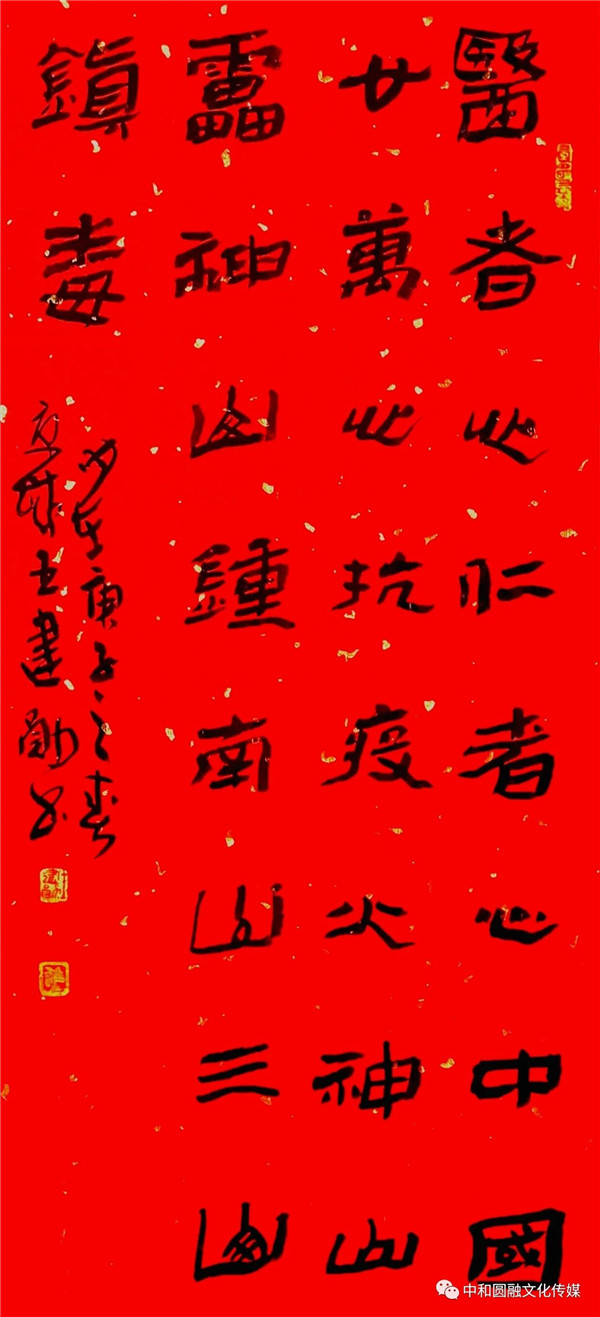 醫者心仁者心中國
廿萬心抗疫火神山
雷神山鍾南山三山
鎮毒
歲在庚子之春
中和圆融文化传媒